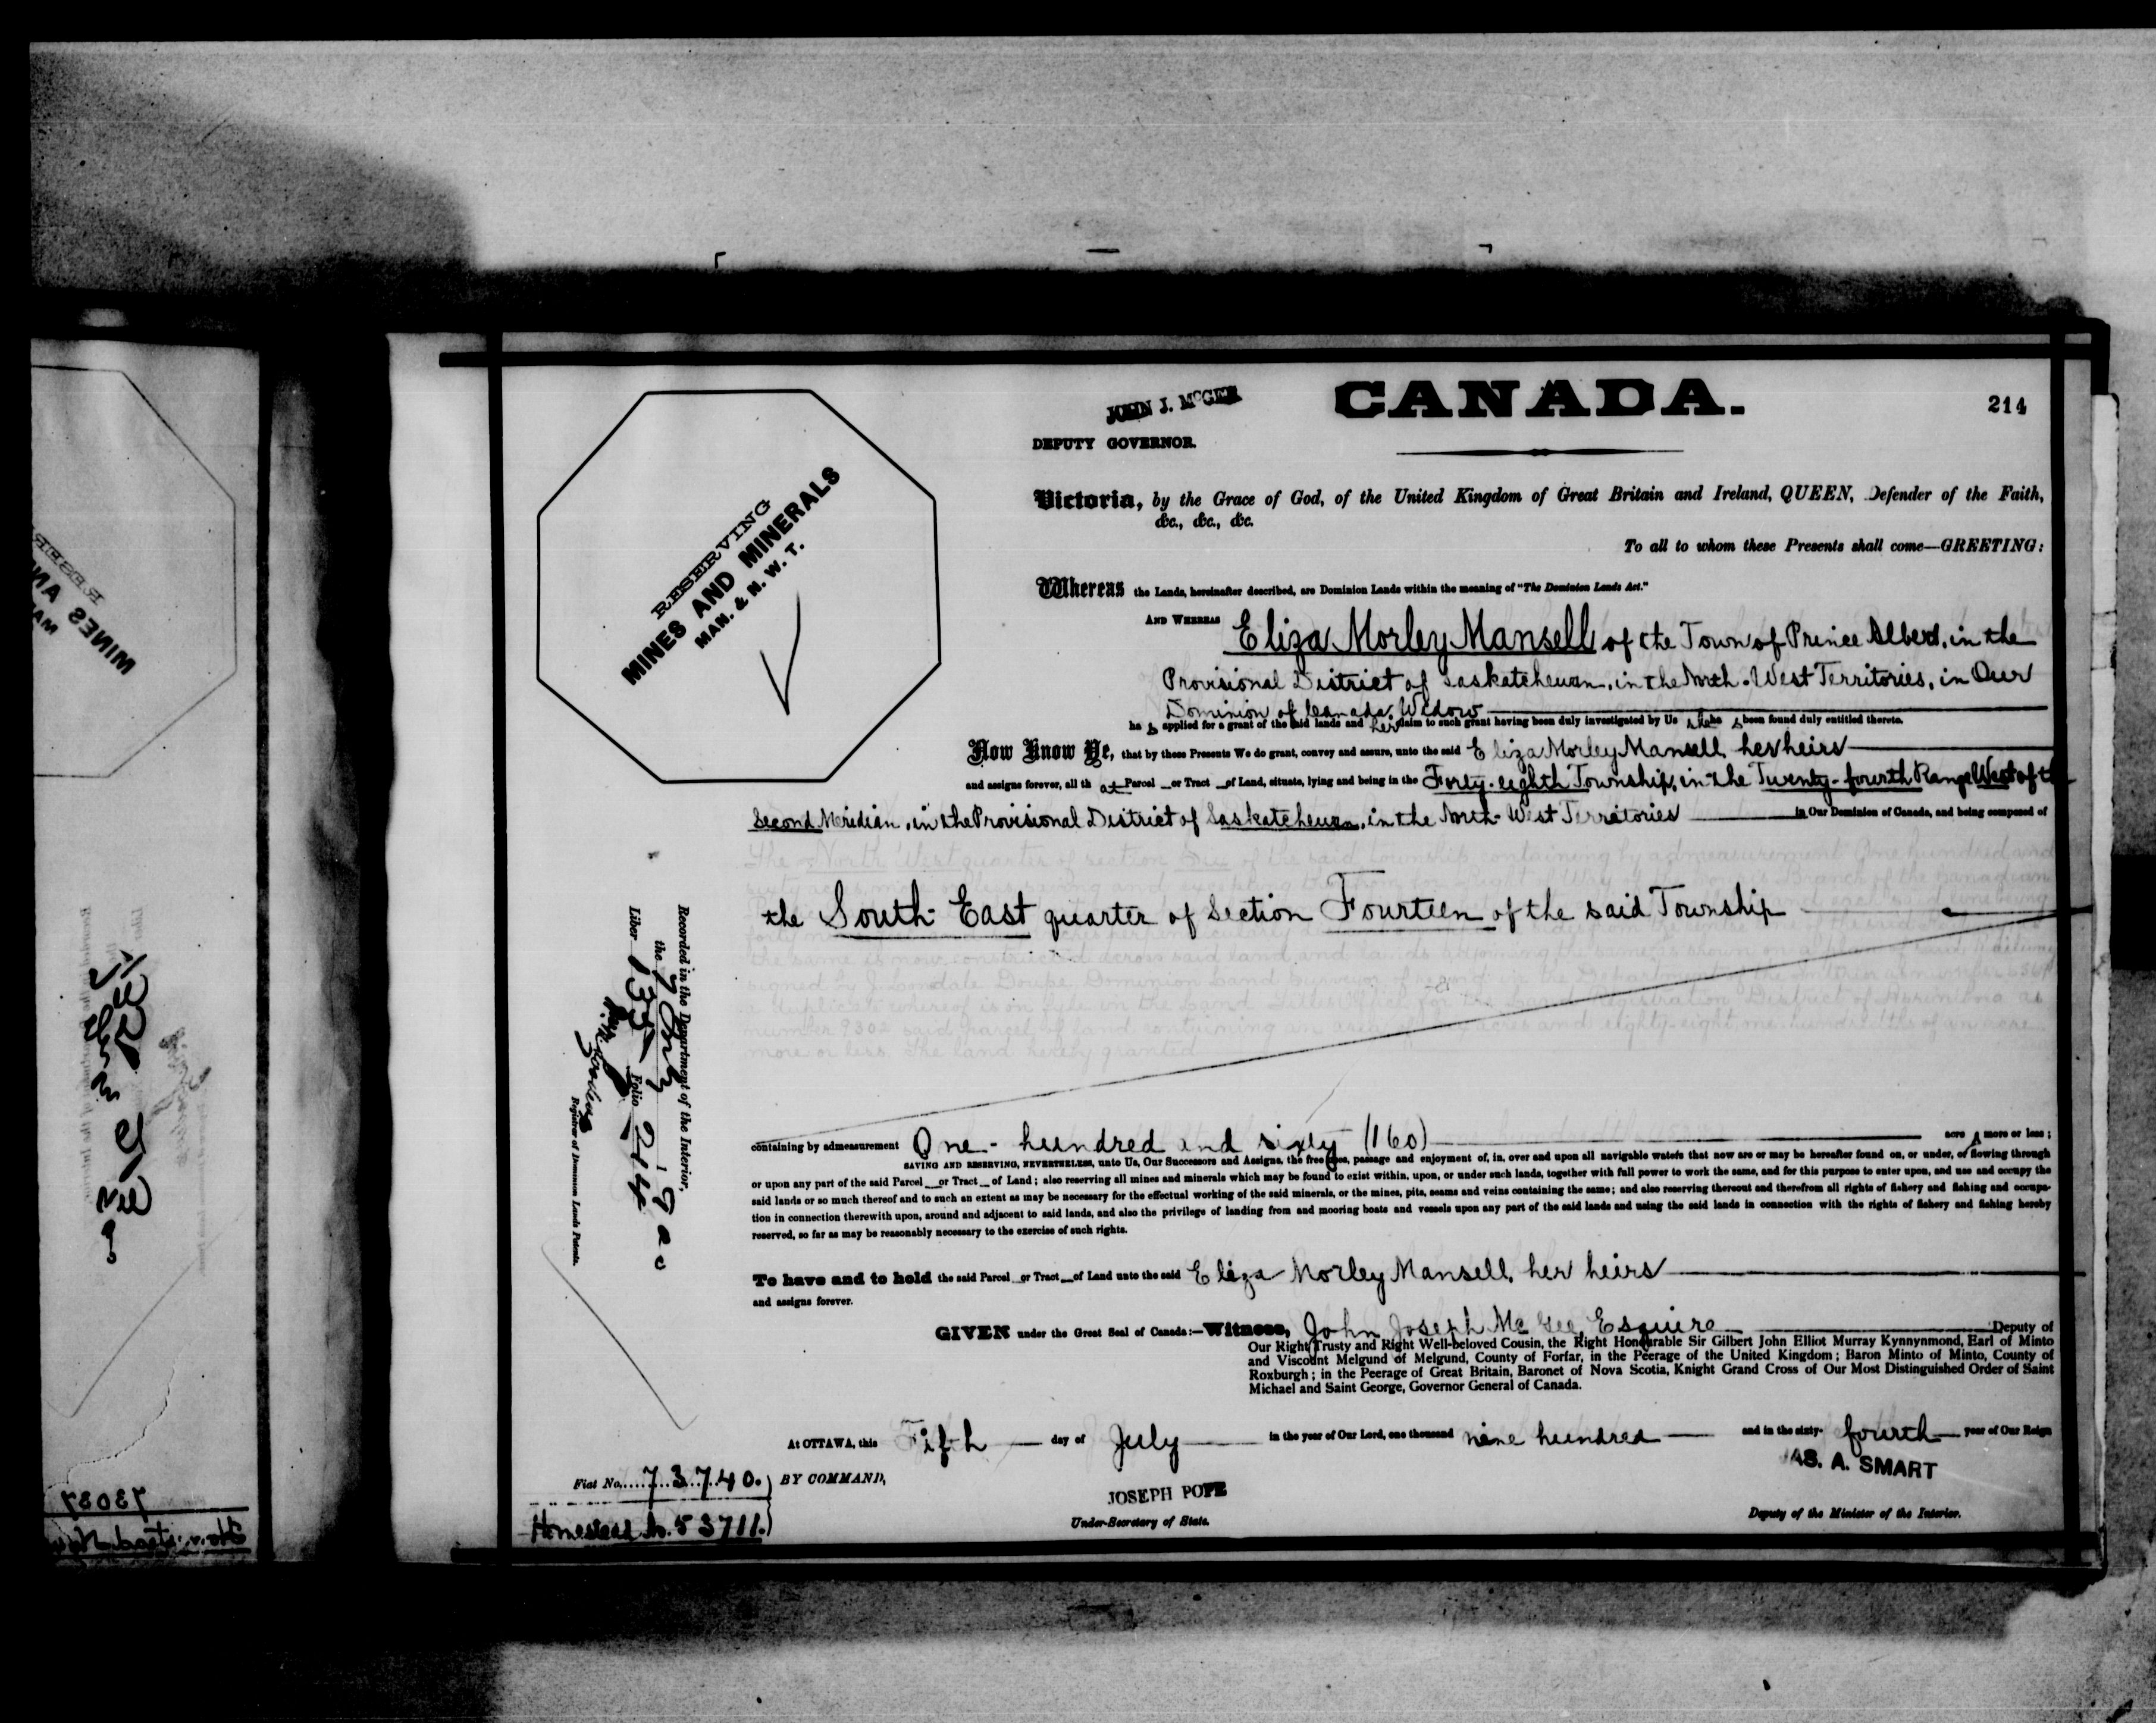 JOHN J. McGEE
CANADA.
214
DEPUTY GOVERNOR.
RESERVING
MINES AND MINERALS
MAN. & N. W. T.
Victoria, by the Grace of God, of the United Kingdom of Great Britain and Ireland, QUEEN, Defender of the Faith,
&c., &c., &c.
To all to whom these Presents shall come—GREETING:
Whereas the Lands, hereinafter described, are Dominion Lands within the meaning of "The Dominion Lands Act."
AND WHEREAS Eliza Morley Mansell of the Town of Prince Albert, in the
Provisional District of Saskatchewan, in the North-West Territories, in Our
Dominion of Canada, Widow
ha s applied for a grant of the said lands and her claim to such grant having been duly investigated by Us she ha s been found duly entitled thereto.
Now Know Ye, that by these Presents We do grant, convey and assure, unto the said Eliza Morley Mansell, her heirs
and assigns forever, all th at Parcel or Tract of Land, situate, lying and being in the Forty-eighth Township, in the Twenty-fourth Range West of the
Second Meridian, in the Provisional District of Saskatchewan, in the North-West Territories in Our Dominion of Canada, and being composed of
the South East quarter of Section Fourteen of the said Township
containing by admeasurement One-hundred and sixty (160) acre s more or less;
SAVING AND RESERVING, NEVERTHELESS, unto Us, Our Successors and Assigns, the free uses, passage and enjoyment of, in, over and upon all navigable waters that now are or may be hereafter found on, or under, or flowing through
or upon any part of the said Parcel or Tract of Land; also reserving all mines and minerals which may be found to exist within, upon, or under such lands, together with full power to work the same, and for this purpose to enter upon, and use and occupy the
said lands or so much thereof and to such an extent as may be necessary for the effectual working of the said minerals, or the mines, pits, seams and veins containing the same; and also reserving thereout and therefrom all rights of fishery and fishing and occupa-
tion in connection therewith upon, around and adjacent to said lands, and also the privilege of landing from and mooring boats and vessels upon any part of the said lands and using the said lands in connection with the rights of fishery and fishing hereby
reserved, so far as may be reasonably necessary to the exercise of such rights.
To have and to hold the said Parcel or Tract of Land unto the said Eliza Morley Mansell, her heirs
and assigns forever.
GIVEN under the Great Seal of Canada:—Witness, John Joseph McGee, Esquire Deputy of
Our Right Trusty and Right Well-beloved Cousin, the Right Honourable Sir Gilbert John Elliot Murray Kynnynmond, Earl of Minto
and Viscount Melgund of Melgund, County of Forfar, in the Peerage of the United Kingdom; Baron Minto of Minto, County of
Roxburgh; in the Peerage of Great Britain, Baronet of Nova Scotia, Knight Grand Cross of Our Most Distinguished Order of Saint
Michael and Saint George, Governor General of Canada.
At OTTAWA, this Fifth day of July in the year of Our Lord, one thousand nine hundred and in the sixty-fourth year of Our Reign
AS. A. SMART
Fiat No. 73740. BY COMMAND,
JOSEPH POPE
Homestead No. 53711.
Under-Secretary of State.
Deputy of the Minister of the Interior.
Recorded in the Department of the Interior,
the 7 July 1900
Liber 135 Folio 214
Registrar of Dominion Lands Patents.
73037